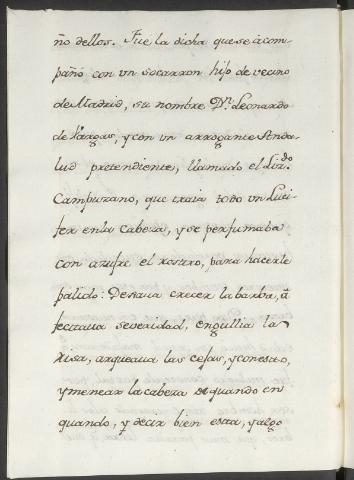 ño dellos. Fue la dicha que se acom-
pañó con un socarron hijo de vecino
de Madrid, su nombre Dn. Leonardo
de Vargas, y con un arrogante Anda-
luz pretendiente, llamado el Lizdo.
Campuzano, que traia todo un Luci-
fer en la cabeza, y se perfumaba
con azufre el rostro, para hacerle
palido: Dexava crecer la barba, a
fectava severidad, engullia la
risa, arqueava las cejas, y con esto,
y menear la cabeza de quando en
quando, y decir bien esta, y algo